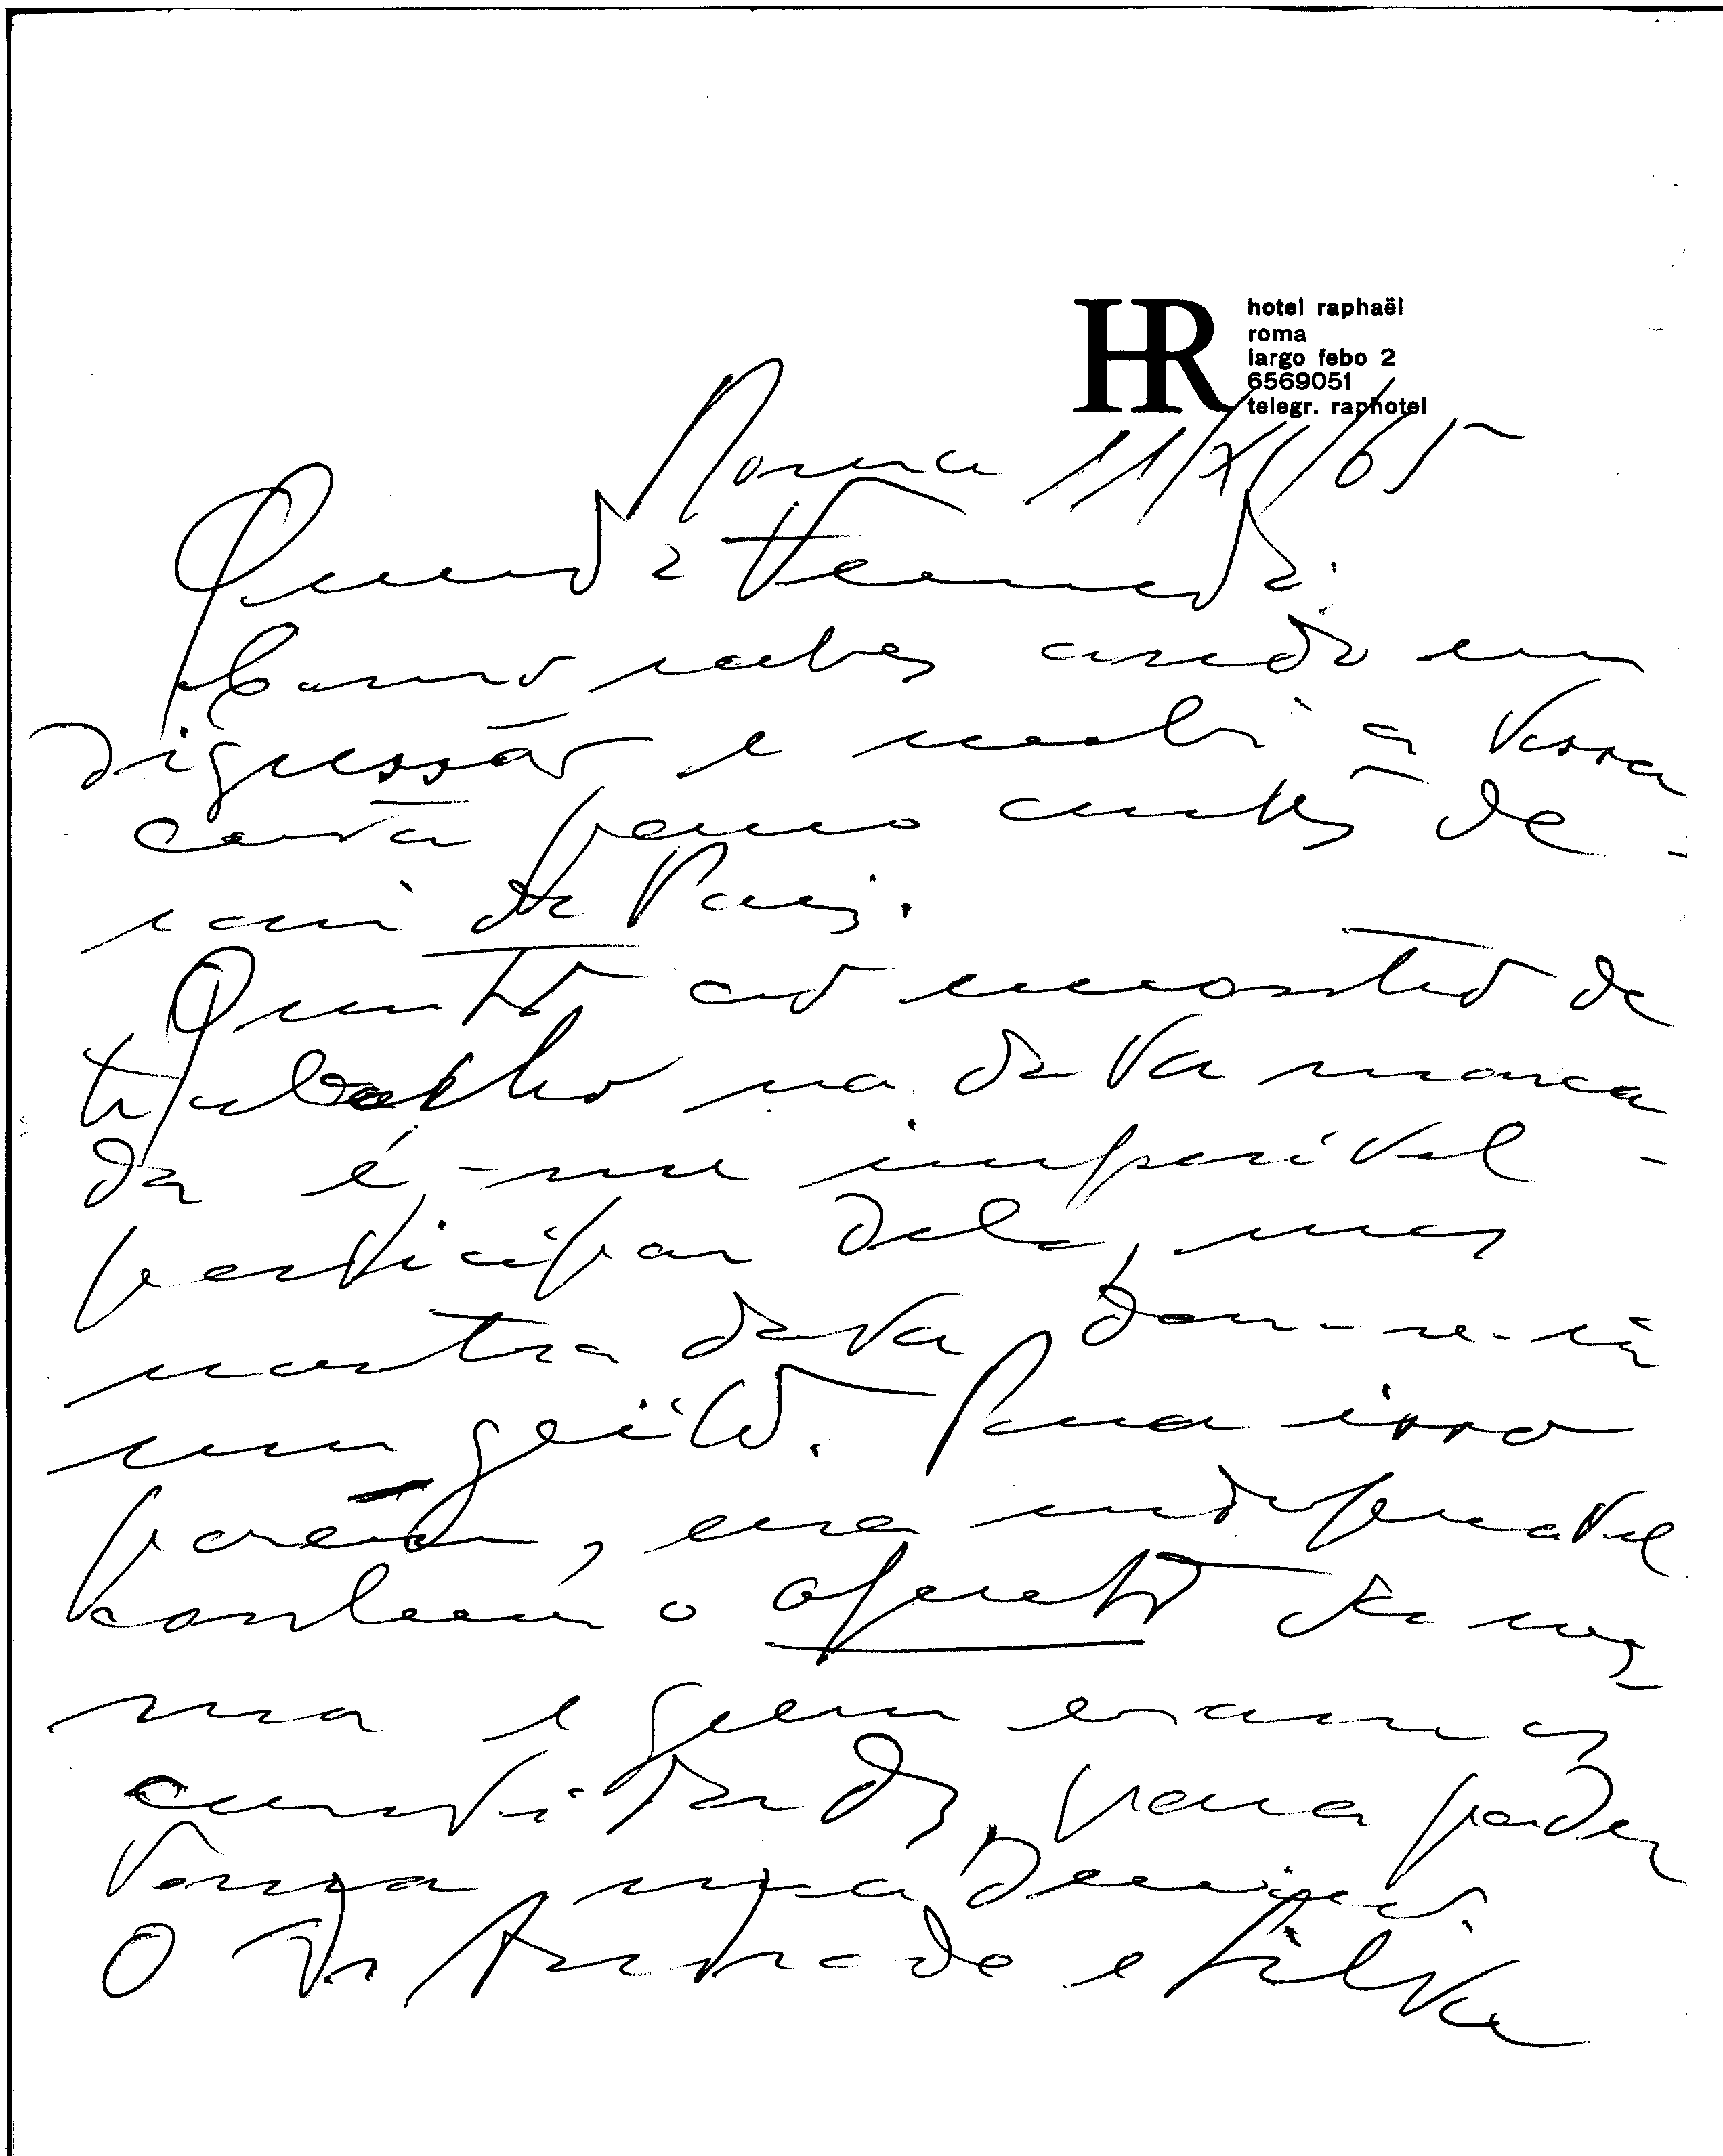 HR
hotel raphaël
roma
largo febo 2
6569051
telegr. raphotel
Roma 11/XI/65
Querido
Como sabes ando em
digressão e recebi a vossa
carta pouco antes de
sair de Paris.
Quanto ao encontro de
trabalho na data marca
da é-me impossível
participar dele, mas
noutra data dar-se-ia
um geito. Para isso
porém, era indispensável
conhecer o objecto da mes-
ma e quem eram os
convidados, para poder
tomar uma decisão.
O Dr Andrade e Silva